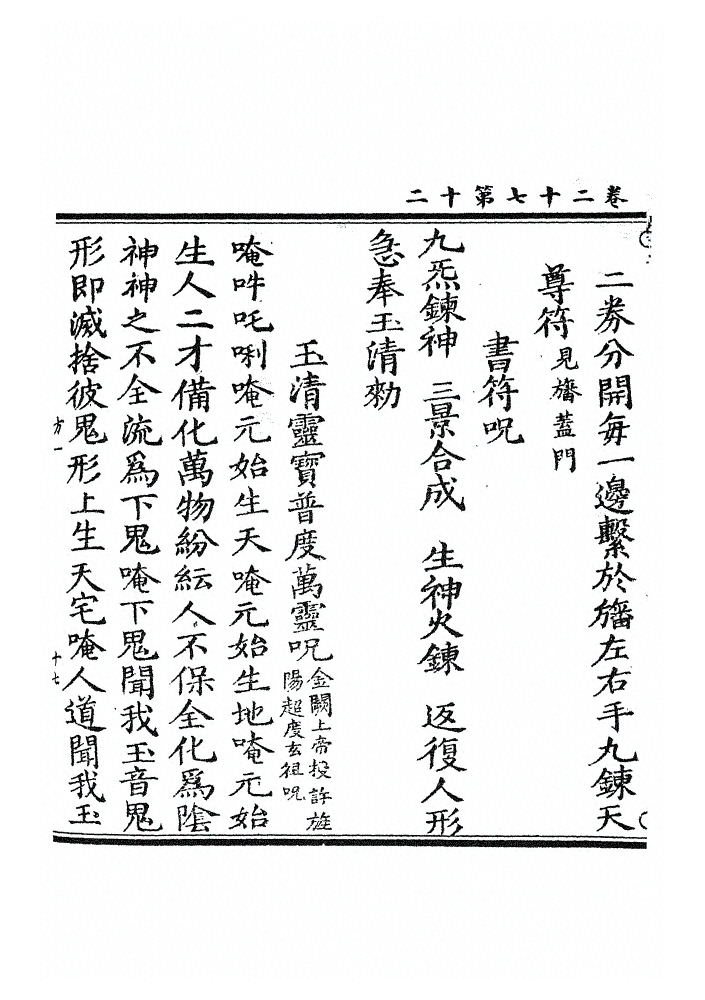 卷二十七第十二
二券分開每一邊繫於旛左右手九鍊天
尊符見旛蓋門
書符呪
九炁鍊神　三景合成　生神火鍊　返復人形
急奉玉清勑
玉清靈寶普度萬靈呪金闕上帝授許旌
陽超度玄祖呪
唵吽吒唎唵元始生天唵元始生地唵元始
生人二才備化萬物紛紜人不保全化爲陰
神神之不全流爲下鬼唵下鬼聞我玉音鬼
形即滅捨彼鬼形上生天宅唵人道聞我玉
方一
十七